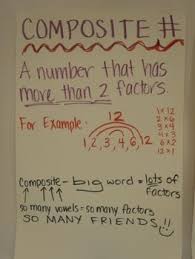 COMPOSITE #
A number that has
more than 2 factors.
For Example:
12
1, 2, 3, 4, 6, 12
1 x 12
2 x 6
3 x 4
4 x 3
6 x 2
12 x 1
Composite = big word = lots of
Factors
so many vowels = so many factors
SO MANY FRIENDS!!